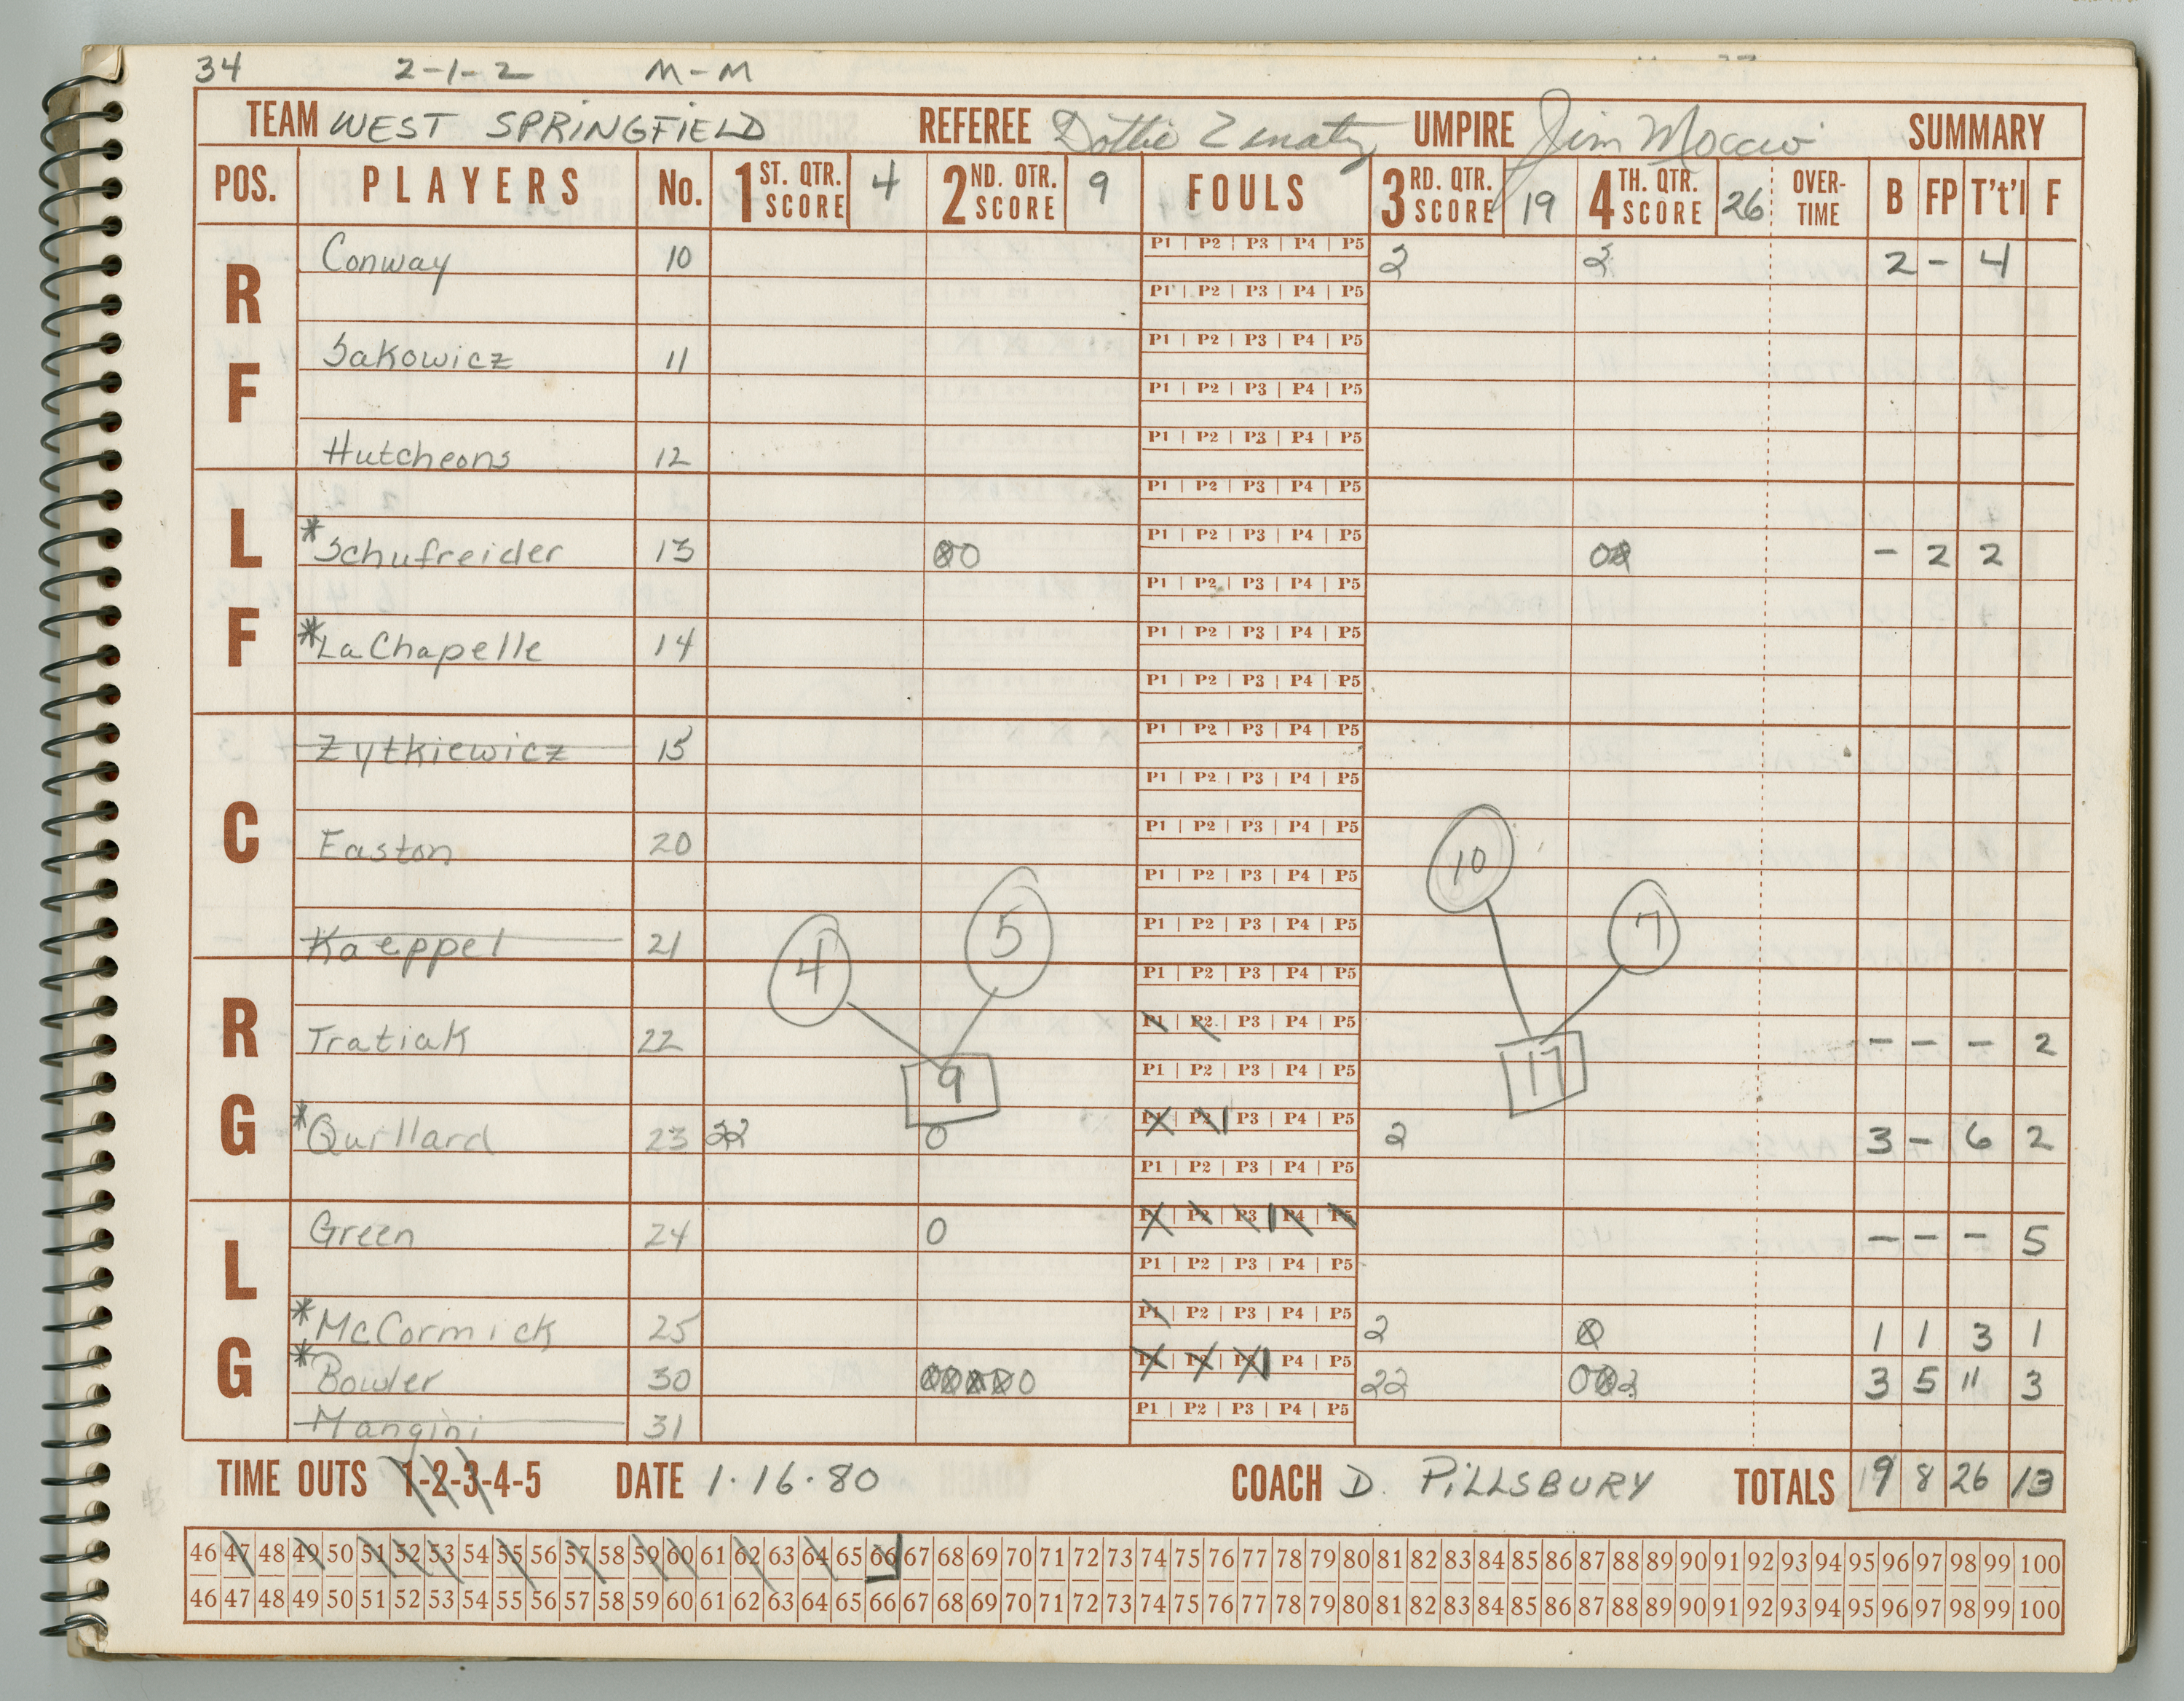 34 2-1-2 M-M
TEAM WEST SPRINGFIELD REFEREE Dottie Zenaty UMPIRE Jim SUMMARY
POS. PLAYERS No. 1ST. QTR. SCORE 4 2ND. QTR. SCORE 9 FOULS 3RD. QTR. SCORE 19 4TH. QTR. SCORE 26 OVER-TIME B FP T't'l F
RF
P1 | P2 | P3 | P4 | P5
Conway 10 2 2 2 - 4
P1 | P2 | P3 | P4 | P5
P1 | P2 | P3 | P4 | P5
Sakowicz 11
P1 | P2 | P3 | P4 | P5
P1 | P2 | P3 | P4 | P5
Hutcheons 12
LF
P1 | P2 | P3 | P4 | P5
P1 | P2 | P3 | P4 | P5
*Schufreider 13 00 00 - 2 2
P1 | P2 | P3 | P4 | P5
P1 | P2 | P3 | P4 | P5
*LaChapelle 14
P1 | P2 | P3 | P4 | P5
C
P1 | P2 | P3 | P4 | P5
Zytkiewicz 15
P1 | P2 | P3 | P4 | P5
P1 | P2 | P3 | P4 | P5
Easton 20 10
P1 | P2 | P3 | P4 | P5
P1 | P2 | P3 | P4 | P5
Kaeppel 21 4 5 7
RG
P1 | P2 | P3 | P4 | P5
P1 | P2 | P3 | P4 | P5
Tratiak 22 - - - 2
P1 | P2 | P3 | P4 | P5
9 17
P1 | P2 | P3 | P4 | P5
*Quillard 23 22 0 2 3 - 6 2
P1 | P2 | P3 | P4 | P5
LG
P1 | P2 | P3 | P4 | P5
Green 24 0 - - - 5
P1 | P2 | P3 | P4 | P5
P1 | P2 | P3 | P4 | P5
*McCormick 25 2 0 1 1 3 1
P1 | P2 | P3 | P4 | P5
*Bowler 30 000000 22 002 3 5 11 3
P1 | P2 | P3 | P4 | P5
Mangini 31
TIME OUTS 1-2-3-4-5 DATE 1·16·80 COACH D. PILLSBURY TOTALS 9 8 26 13
46 47 48 49 50 51 52 53 54 55 56 57 58 59 60 61 62 63 64 65 66 67 68 69 70 71 72 73 74 75 76 77 78 79 80 81 82 83 84 85 86 87 88 89 90 91 92 93 94 95 96 97 98 99 100
46 47 48 49 50 51 52 53 54 55 56 57 58 59 60 61 62 63 64 65 66 67 68 69 70 71 72 73 74 75 76 77 78 79 80 81 82 83 84 85 86 87 88 89 90 91 92 93 94 95 96 97 98 99 100